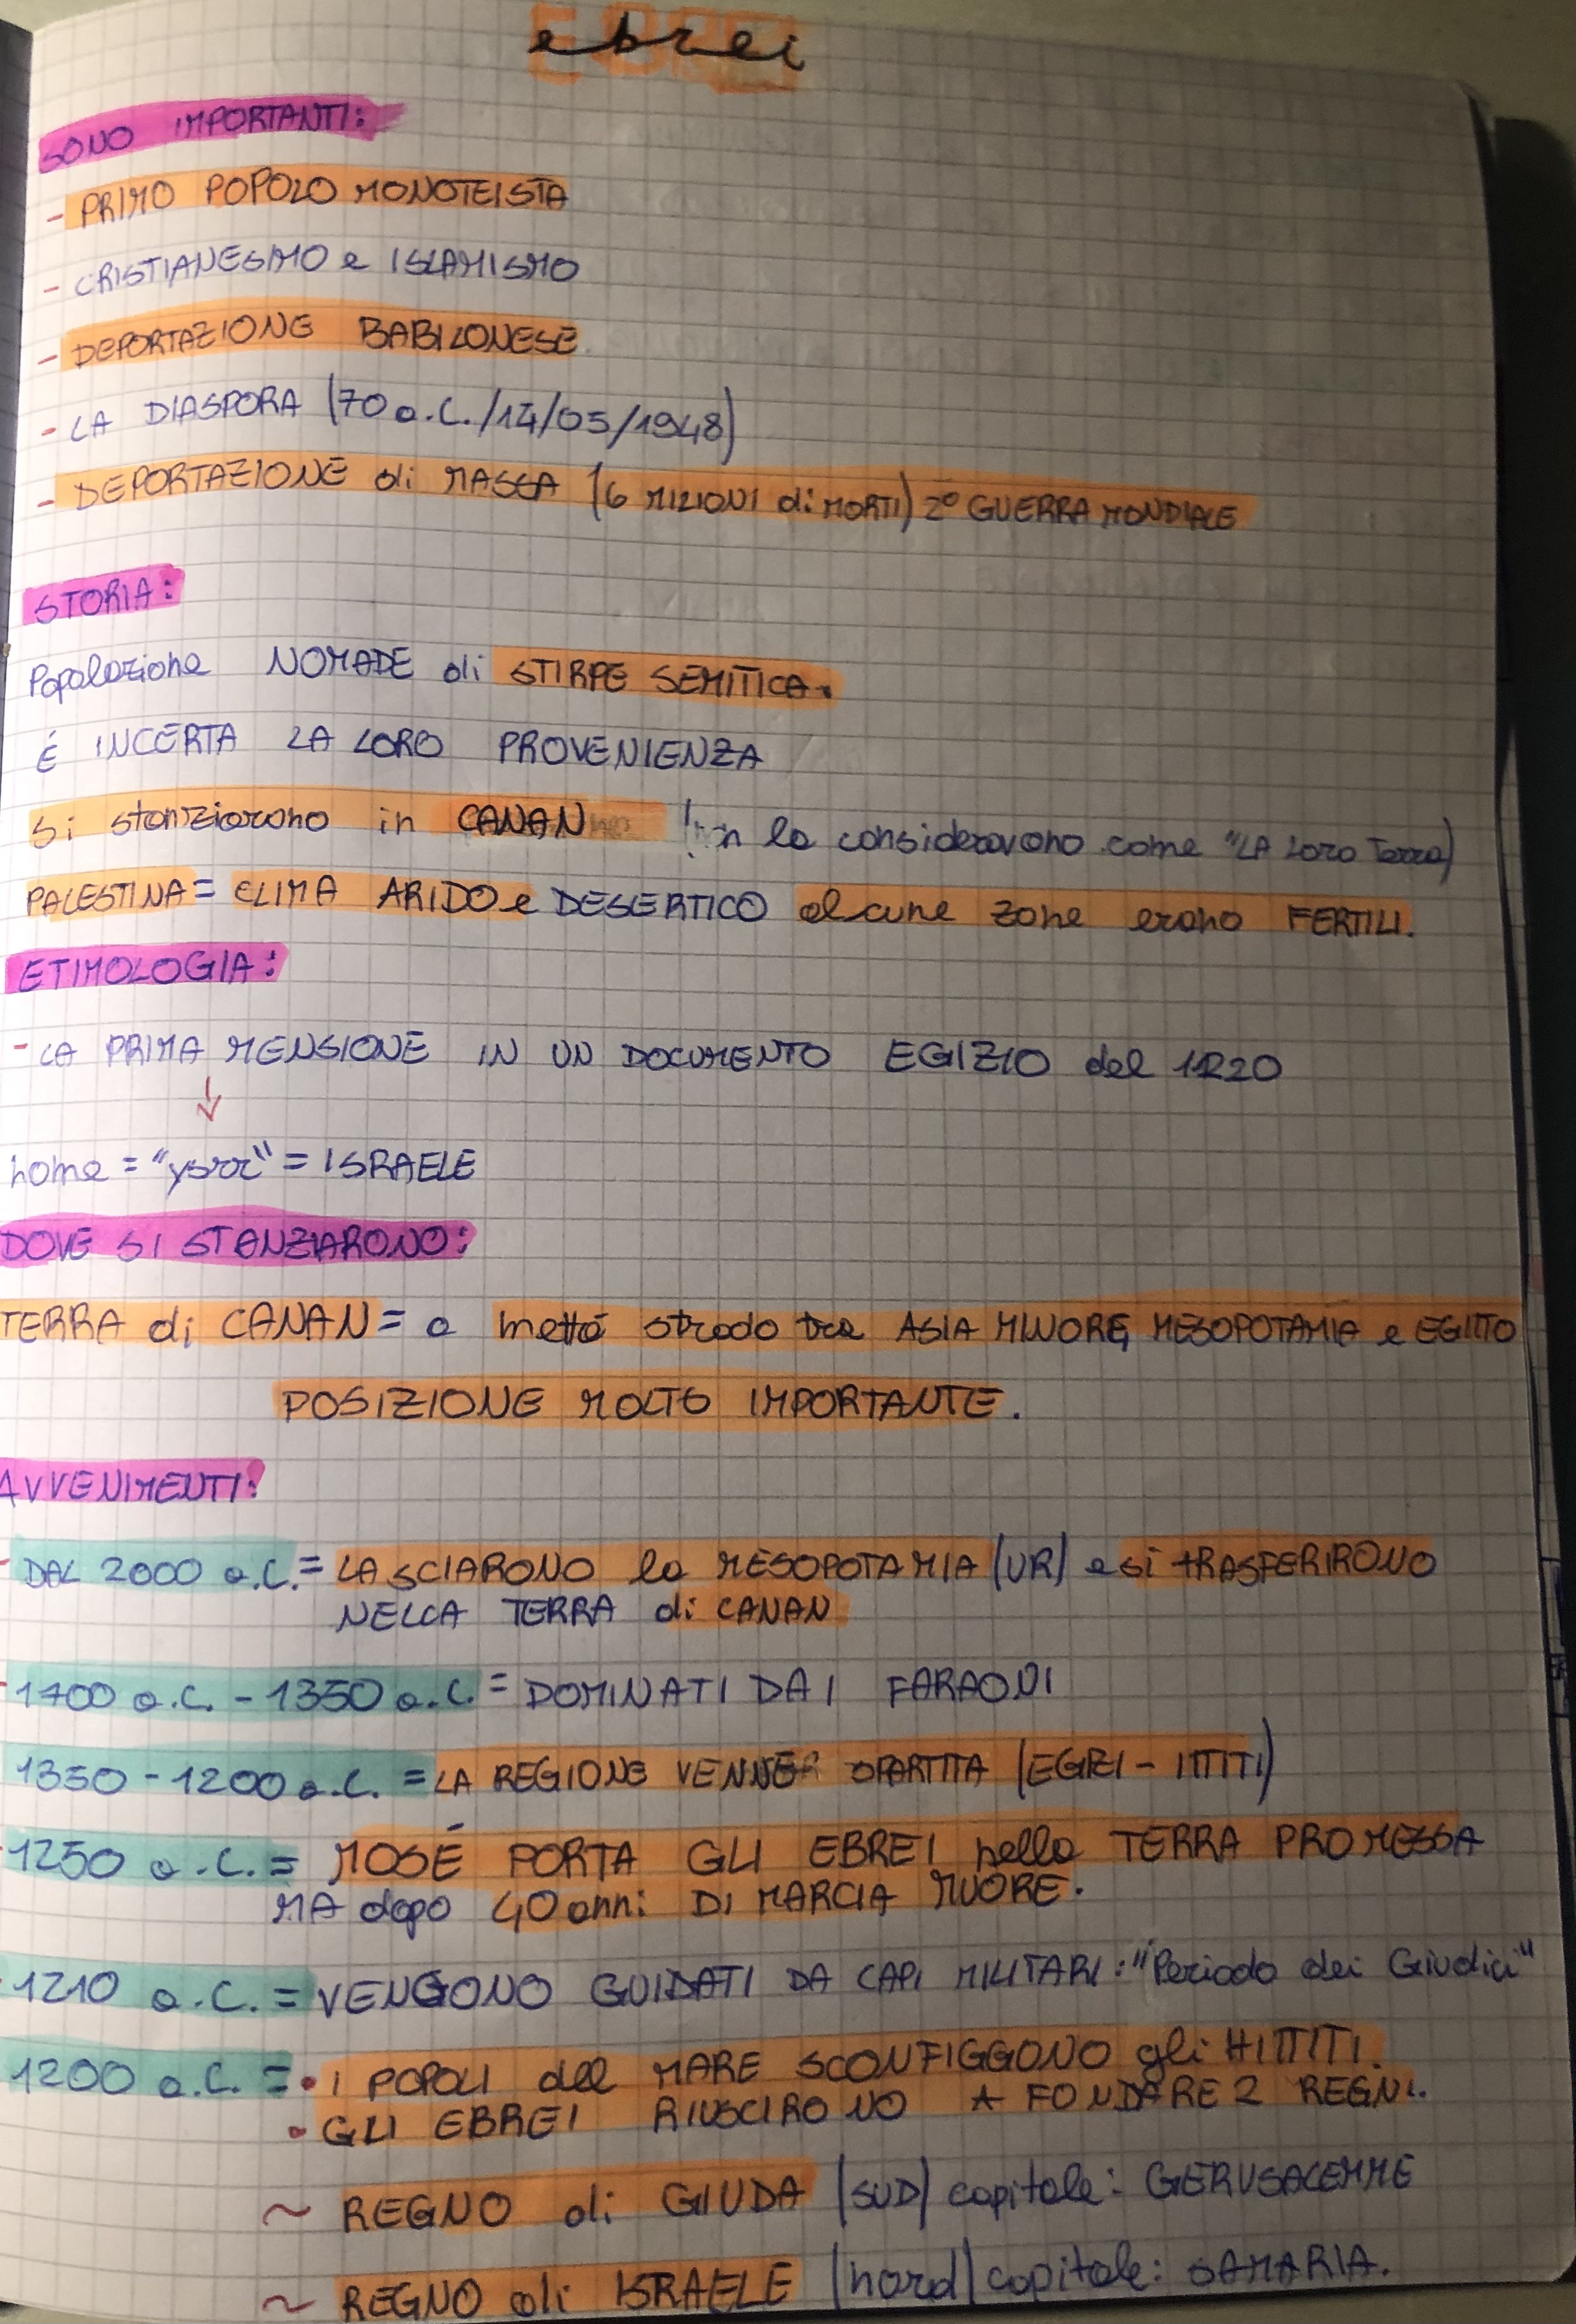 ebrei
SONO IMPORTANTI:
- PRIMO POPOLO MONOTEISTA
- CRISTIANESIMO e ISLAMISMO
- DEPORTAZIONE BABILONESE
- LA DIASPORA (70 a.C./14/05/1948)
- DEPORTAZIONE di MASSA (6 MILIONI di MORTI) 2° GUERRA MONDIALE
STORIA:
Popolazione NOMADE di STIRPE SEMITICA.
É INCERTA LA LORO PROVENIENZA
Si stanziarono in CANAN la consideravano come "LA Loro Terra)
PALESTINA = CLIMA ARIDO e DESERTICO alcune zone erano FERTILI.
ETIMOLOGIA:
- LA PRIMA MENSIONE IN UN DOCUMENTO EGIZIO del 1220
↓
nome = "ysrr" = ISRAELE
DOVE SI STANZIARONO:
TERRA di CANAN = a mettá strada tra ASIA MINORE, MESOPOTAMIA e EGITTO
POSIZIONE MOLTO IMPORTANTE.
AVVENIMENTI:
- DAL 2000 a.C. = LASCIARONO la MESOPOTAMIA (UR) e si tRASFERIRONO
NELLA TERRA di CANAN
- 1700 a.C. - 1350 a.C. = DOMINATI DAI FARAONI
1350 - 1200 a.C. = LA REGIONE VENNE SPARTITA (EGIZI - ITTITI)
- 1250 a.C. = MOSÉ PORTA GLI EBREI nella TERRA PROMESSA
MA dopo 40 anni DI MARCIA MUORE.
- 1210 a.C. = VENGONO GUIDATI DA CAPI MILITARI: "Periodo dei Giudici"
1200 a.C. = • I POPOLI del MARE SCONFIGGONO gli HITTITI.
• GLI EBREI RIUSCIRONO A FONDARE 2 REGNI.
~ REGNO di GIUDA (SUD) capitale: GERUSALEMME
~ REGNO di ISRAELE (nord) capitale: SAMARIA.